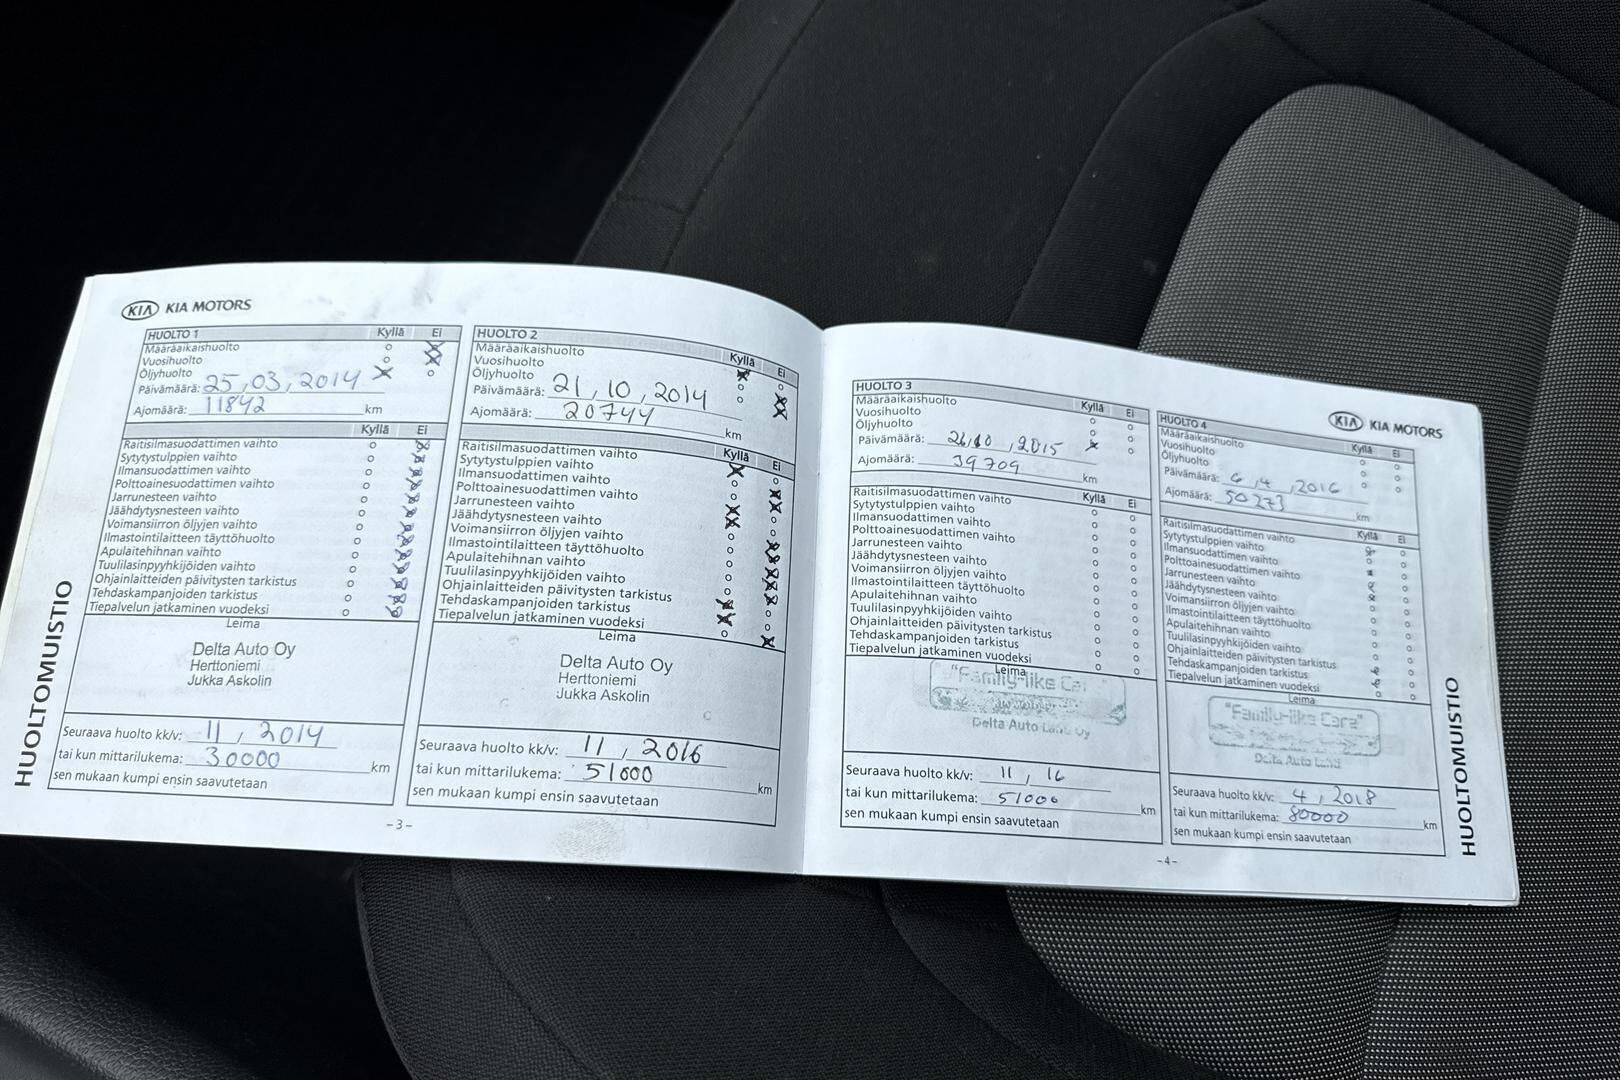 KIA KIA MOTORS
HUOLTO 1 Kyllä Ei
Määräaikaishuolto
Vuosihuolto
Öljyhuolto
Päivämäärä: 25,03,2014
Ajomäärä: 11842 km
Kyllä Ei
Raitisilmasuodattimen vaihto
Sytytystulppien vaihto
Ilmansuodattimen vaihto
Polttoainesuodattimen vaihto
Jarrunesteen vaihto
Jäähdytysnesteen vaihto
Voimansiirron öljyjen vaihto
Ilmastointilaitteen täyttöhuolto
Apulaitehihnan vaihto
Tuulilasinpyyhkijöiden vaihto
Ohjainlaitteiden päivitysten tarkistus
Tehdaskampanjoiden tarkistus
Tiepalvelun jatkaminen vuodeksi
Leima
Delta Auto Oy
Herttoniemi
Jukka Askolin
Seuraava huolto kk/v: 11, 2014
tai kun mittarilukema: 30000 km
sen mukaan kumpi ensin saavutetaan
HUOLTOMUISTIO
HUOLTO 2 Kyllä Ei
Määräaikaishuolto
Vuosihuolto
Öljyhuolto
Päivämäärä: 21,10,2014
Ajomäärä: 20744 km
Kyllä Ei
Raitisilmasuodattimen vaihto
Sytytystulppien vaihto
Ilmansuodattimen vaihto
Polttoainesuodattimen vaihto
Jarrunesteen vaihto
Jäähdytysnesteen vaihto
Voimansiirron öljyjen vaihto
Ilmastointilaitteen täyttöhuolto
Apulaitehihnan vaihto
Tuulilasinpyyhkijöiden vaihto
Ohjainlaitteiden päivitysten tarkistus
Tehdaskampanjoiden tarkistus
Tiepalvelun jatkaminen vuodeksi
Leima
Delta Auto Oy
Herttoniemi
Jukka Askolin
Seuraava huolto kk/v: 11, 2016
tai kun mittarilukema: 51000 km
sen mukaan kumpi ensin saavutetaan
-3-
HUOLTO 3 Kyllä Ei
Määräaikaishuolto
Vuosihuolto
Öljyhuolto
Päivämäärä: 26,10,2015
Ajomäärä: 39709 km
Kyllä Ei
Raitisilmasuodattimen vaihto
Sytytystulppien vaihto
Ilmansuodattimen vaihto
Polttoainesuodattimen vaihto
Jarrunesteen vaihto
Jäähdytysnesteen vaihto
Voimansiirron öljyjen vaihto
Ilmastointilaitteen täyttöhuolto
Apulaitehihnan vaihto
Tuulilasinpyyhkijöiden vaihto
Ohjainlaitteiden päivitysten tarkistus
Tehdaskampanjoiden tarkistus
Tiepalvelun jatkaminen vuodeksi
Leima
"Family-like Car
Delta Auto
Seuraava huolto kk/v: 11, 16
tai kun mittarilukema: 51000 km
sen mukaan kumpi ensin saavutetaan
KIA KIA MOTORS
HUOLTO 4 Kyllä Ei
Määräaikaishuolto
Vuosihuolto
Öljyhuolto
Päivämäärä: 6,4,2016
Ajomäärä: 50273 km
Kyllä Ei
Raitisilmasuodattimen vaihto
Sytytystulppien vaihto
Ilmansuodattimen vaihto
Polttoainesuodattimen vaihto
Jarrunesteen vaihto
Jäähdytysnesteen vaihto
Voimansiirron öljyjen vaihto
Ilmastointilaitteen täyttöhuolto
Apulaitehihnan vaihto
Tuulilasinpyyhkijöiden vaihto
Ohjainlaitteiden päivitysten tarkistus
Tehdaskampanjoiden tarkistus
Tiepalvelun jatkaminen vuodeksi
Leima
"Family-like Care"
Delta Auto
Seuraava huolto kk/v: 4, 2018
tai kun mittarilukema: 80000 km
sen mukaan kumpi ensin saavutetaan
-4-
HUOLTOMUISTIO